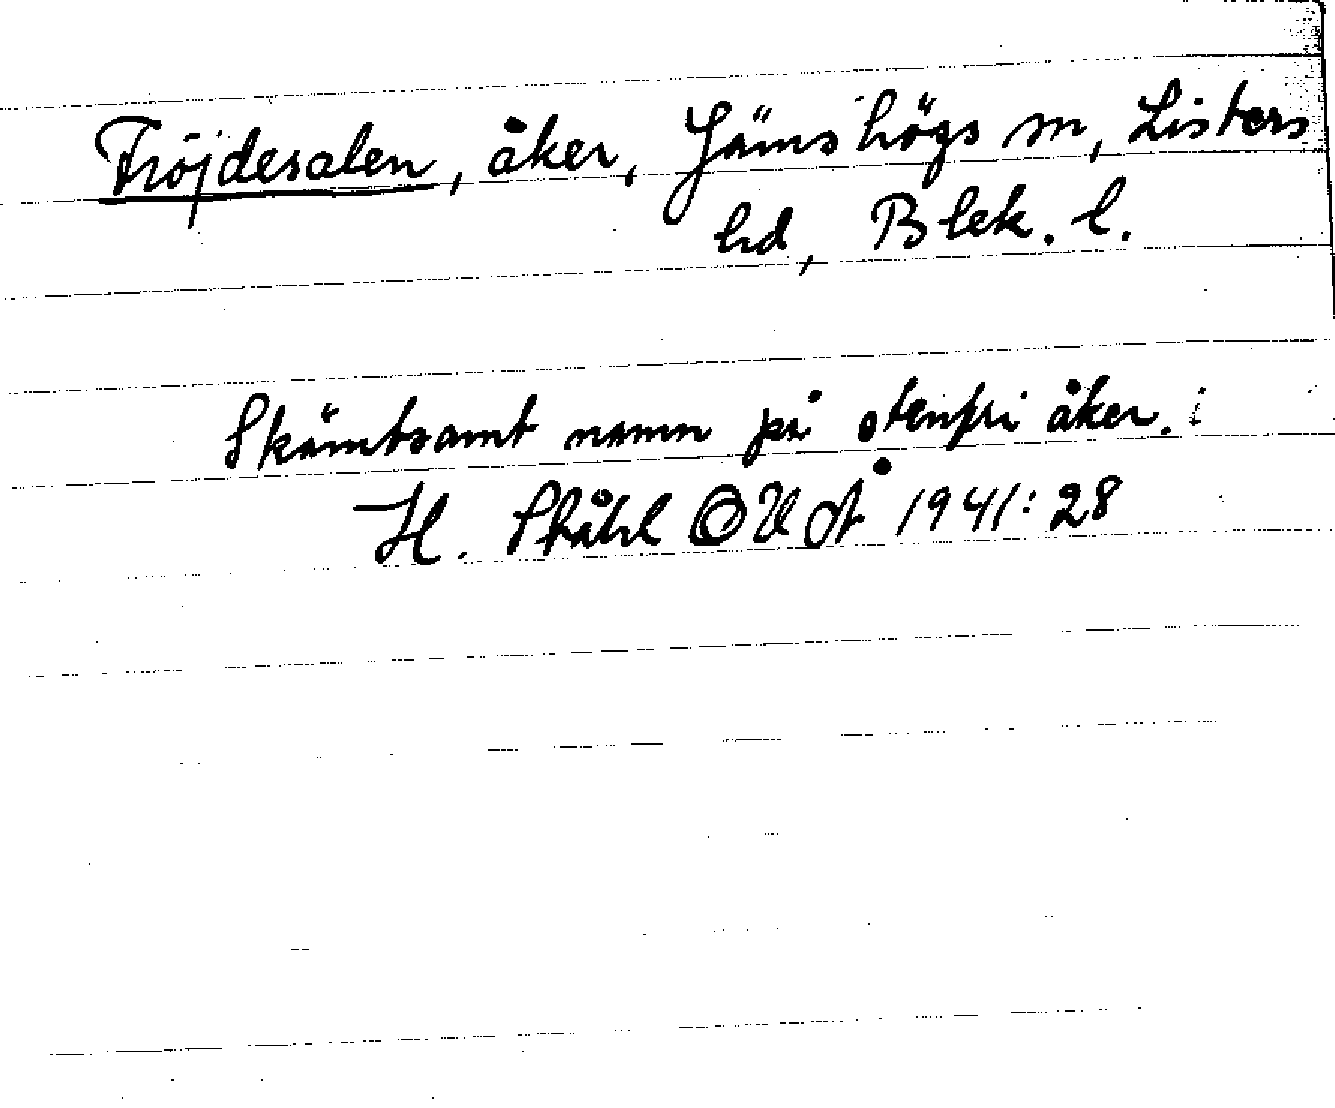 Fröjdesalen, åker, Jämshögs sn, Listers
hd, Blek. l.
Skämtsamt namn på stenfri åker.
H. Ståhl OUÅ 1941: 28